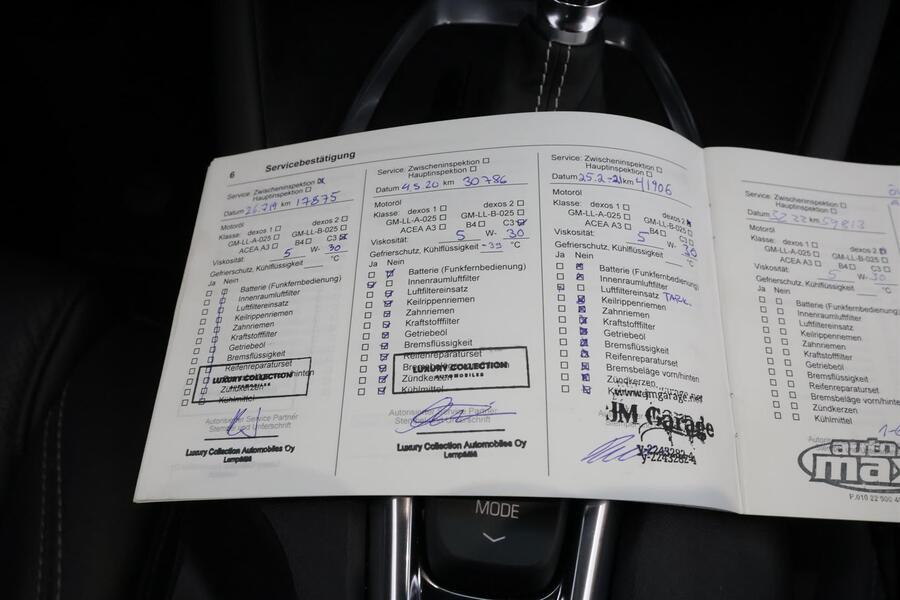 6 Servicebestätigung
Service: Zwischeninspektion
Hauptinspektion
Datum 26.7.19 km 17875
Motoröl
dexos 2
Klasse: dexos 1
GM-LL-A-025 GM-LL-B-025
ACEA A3 B4 C3
Viskosität: 5 W- 30
Gefrierschutz, Kühlflüssigkeit °C
Ja Nein
Batterie (Funkfernbedienung)
Innenraumluftfilter
Luftfiltereinsatz
Keilrippenriemen
Zahnriemen
Kraftstofffilter
Getriebeöl
Bremsflüssigkeit
Reifenreparaturset
LUXURY COLLECTION
AUTOMOBILES
Kühlmittel
Autorisierter Service Partner
Stempel und Unterschrift
Luxury Collection Automobiles Oy
Lempäälä
Service: Zwischeninspektion
Hauptinspektion
Datum 4.5.20 km 30786
Motoröl
Klasse: dexos 1 dexos 2
GM-LL-A-025 GM-LL-B-025
ACEA A3 B4 C3
Viskosität: 5 W- 30
Gefrierschutz, Kühlflüssigkeit -39 °C
Ja Nein
Batterie (Funkfernbedienung)
Innenraumluftfilter
Luftfiltereinsatz
Keilrippenriemen
Zahnriemen
Kraftstofffilter
Getriebeöl
Bremsflüssigkeit
Reifenreparaturset
LUXURY COLLECTION
AUTOMOBILES
Zündkerzen
Kühlmittel
Autorisierter Service Partner
Stempel und Unterschrift
Luxury Collection Automobiles Oy
Lempäälä
Service: Zwischeninspektion
Hauptinspektion
Datum 25.2-21 km 41906
Motoröl
Klasse: dexos 1 dexos 2
GM-LL-A-025 GM-LL-B-025
ACEA A3 B4 C3
Viskosität: 5 W- 30
Gefrierschutz, Kühlflüssigkeit °C
Ja Nein
Batterie (Funkfernbedienung)
Innenraumluftfilter
Luftfiltereinsatz TARK.
Keilrippenriemen
Zahnriemen
Kraftstofffilter
Getriebeöl
Bremsflüssigkeit
Reifenreparaturset
Bremsbeläge vorn/hinten
Zündkerzen
www.jmgarage.net
JM Garage
y-2243282-4
Service: Zwischeninspektion
Hauptinspektion
Datum km 59813
Motoröl
Klasse: dexos 1 dexos 2
GM-LL-A-025 GM-LL-B-025
ACEA A3 B4 C3
Viskosität: 5 W- 30
Gefrierschutz, Kühlflüssigkeit °C
Ja Nein
Batterie (Funkfernbedienung)
Innenraumluftfilter
Luftfiltereinsatz
Keilrippenriemen
Zahnriemen
Kraftstofffilter
Getriebeöl
Bremsflüssigkeit
Reifenreparaturset
Bremsbeläge vorn/hinten
Zündkerzen
Kühlmittel
auto
max
P.010 22 900
MODE